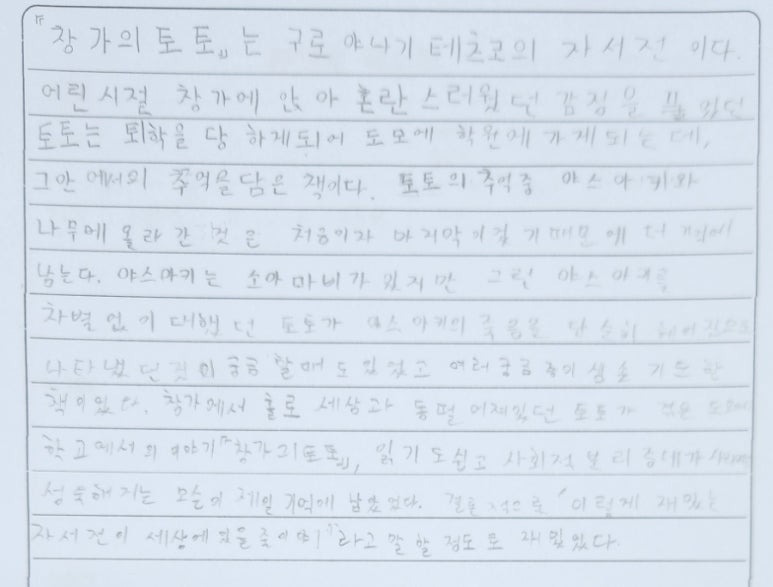 『창가의 토토』는 구로야나기 테츠코의 자서전 이다.
어린 시절 창가에 앉아 혼란 스러웠던 감정을
토토는 퇴학을 당 하게되어 도모에 학원에 가게 되는 데,
그안에서의 추억을 담은 책이다. 토토의 추억중 야스아키와
나무에 올라 간 것은 처음이자 마지막이었기 때문에 더 기억에
남는다. 야스아키는 소아마비가 있지만 그런 야스아키를
차별 없이 대했던 토토가 야스아키의 죽음을 단순히
나타냈던것이 궁금 할때도 있었고 여러 궁금증이 생 기도 한
책이었다. 창가에서 홀로 세상과 동떨어져있던 토토가 겪은
학교에서의 이야기『창가의토토』, 읽기도쉽고 사회적
성숙해지는 모습이 제일 기억에 남았었다. 결론적으로 "이렇게 재밌는
자서전이 세상에 있을줄이야!"라고 말 할 정도로 재밌었다.